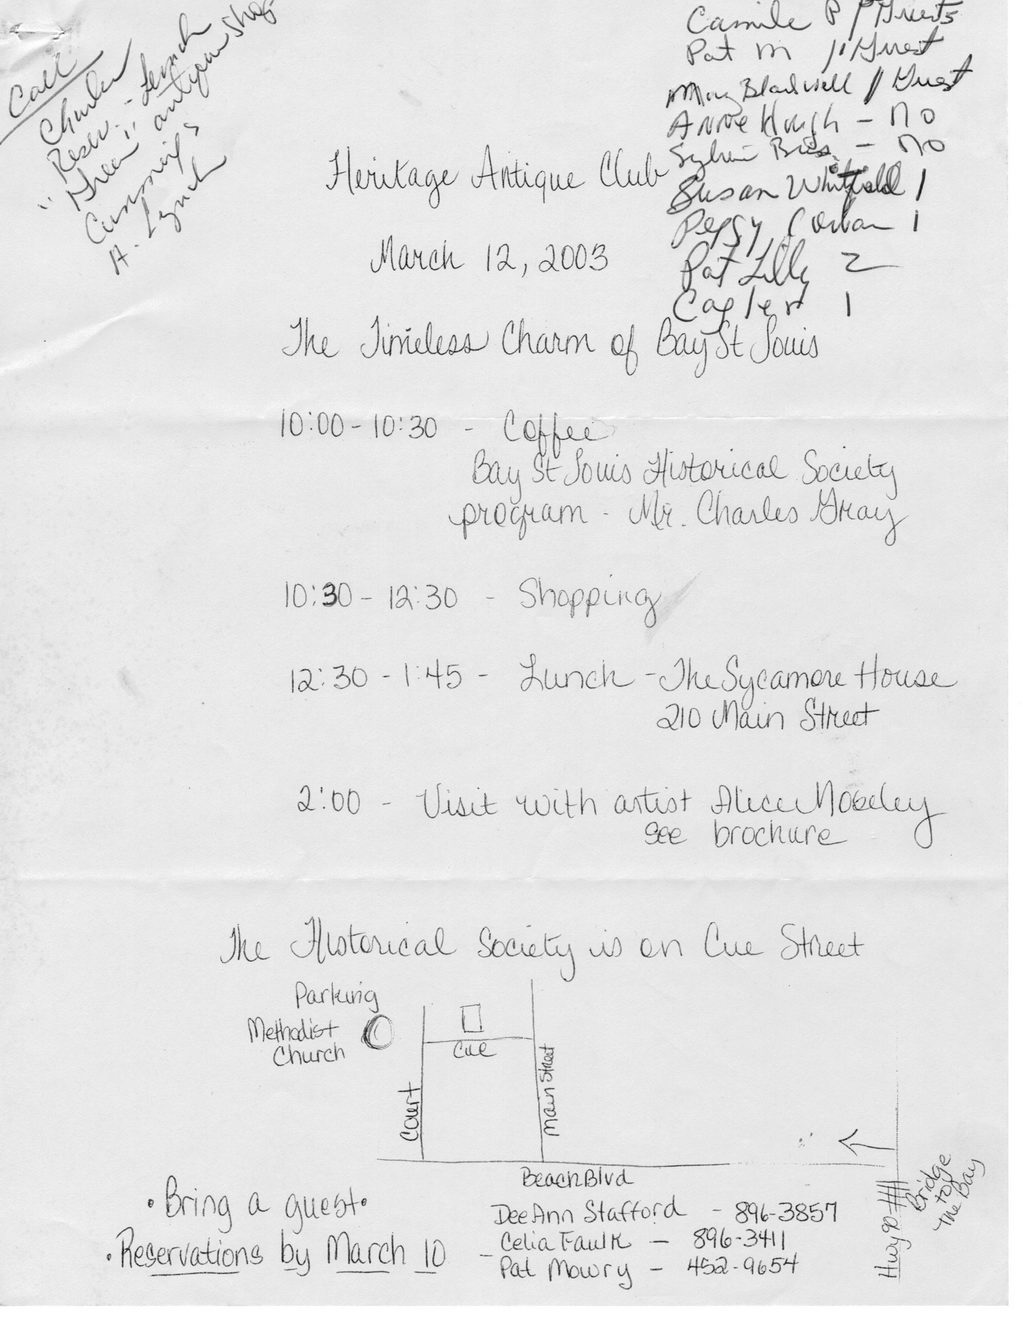 Call
Charles
Reser. - Lunch
"Green" antique shop
Cumming's
A. Lynch
Camille P / Guests
Pat M / Guest
Mary Blackwell / Guest
Anne Hough - NO
Sylvia - NO
Susan Whitfield 1
Peggy 1
Pat Lilly 2
1
Heritage Antique Club
March 12, 2003
The Timeless Charm of Bay St Louis
10:00 - 10:30 - Coffee
Bay St Louis Historical Society
program - Mr. Charles Gray
10:30 - 12:30 - Shopping
12:30 - 1:45 - Lunch - The Sycamore House
210 Main Street
2:00 - Visit with artist Alice Moseley
see brochure
The Historical Society is on Cue Street
Parking
Methodist
Church
Cue
Court
Main Street
Beach Blvd
Hwy 90
Bridge
to
The Bay
• Bring a guest •
• Reservations by March 10
DeeAnn Stafford - 896-3857
- Celia Faulk - 896-3411
Pat Mowry - 452-9654